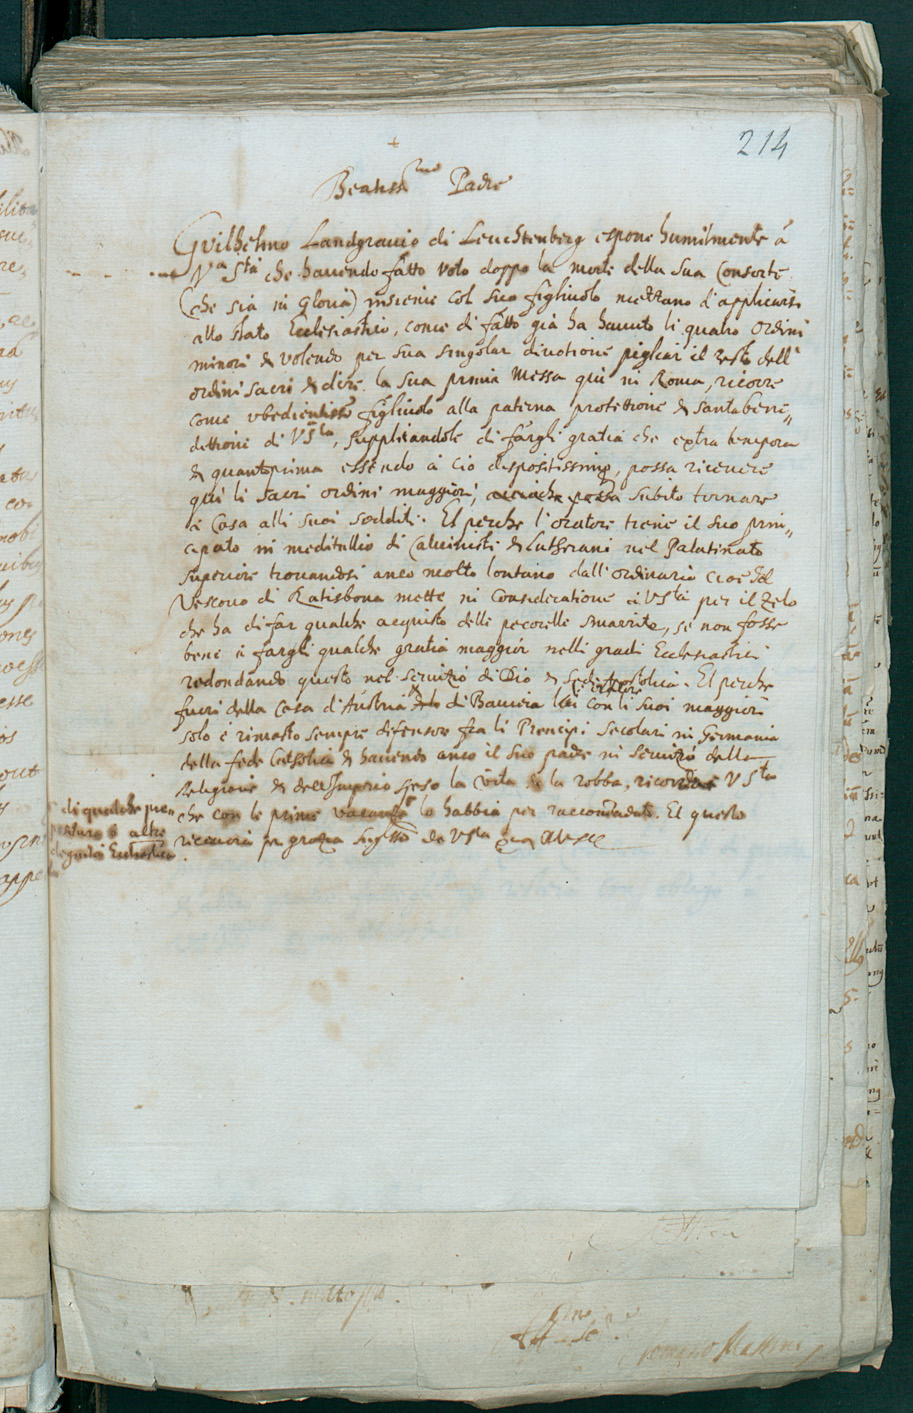 214
+
Beatiss.mo Padre
Guilhelmo Landgravio di Leuchtenberg espone humilmente á
V.a S.tà che havendo fatto voto doppo la morte della sua Consorte
(che sia in gloria) insieme col suo figliuolo mezzano d'applicarsi
allo stato Ecclesiastico, come di fatto già ha havuto li quatro ordini
minori & volendo per sua singolar divotione pigliar il resto dell'
ordini sacri & dire la sua prima Messa qui in Roma, ricorre
come ubedientiss.o figliuolo alla paterna protettione & santa bene„
dittione di V S.tà, supplicandole di fargli gratia che extra tempora
& quantoprima essendo à ciò dispositissimo, possa ricevere
qui li sacri ordini maggiori, acciochè possa subito tornare
à Casa alli suoi sodditi. Et perche l'oratore tiene il suo prin„
cipato in meditullio di Calvinisti & Lutherani nel Palatinato
superiore trovandosi anco molto lontano dall'ordinario cioè del
Vescovo di Ratisbona mette in consideratione à V S.tà per il zelo
che ha di far qualche acquisto delle pecorelle smarrite, se non fosse
bene à fargli qualche gratia maggior nelli gradi Ecclesiastici
redondando questo nel servizio di Dio & Sede Apostolica. Et perche
fuori della Casa d'Austria & di Baviera lui con li suoi maggiori
solo è rimasto sempre difensore fra li Prencipi secolari in Germania
della fede Catholica & havendo anco il suo padre in servizio della
Religione & dell'Imperio speso la vita & la robba, ricorre à V S.tà
che con le prime vacanze lo habbia per raccomandato. Et questo
di qualche pre„
positura ò altre
dignità Ecclesiastica
riceverà per gratia da V S.tà Quam Deus